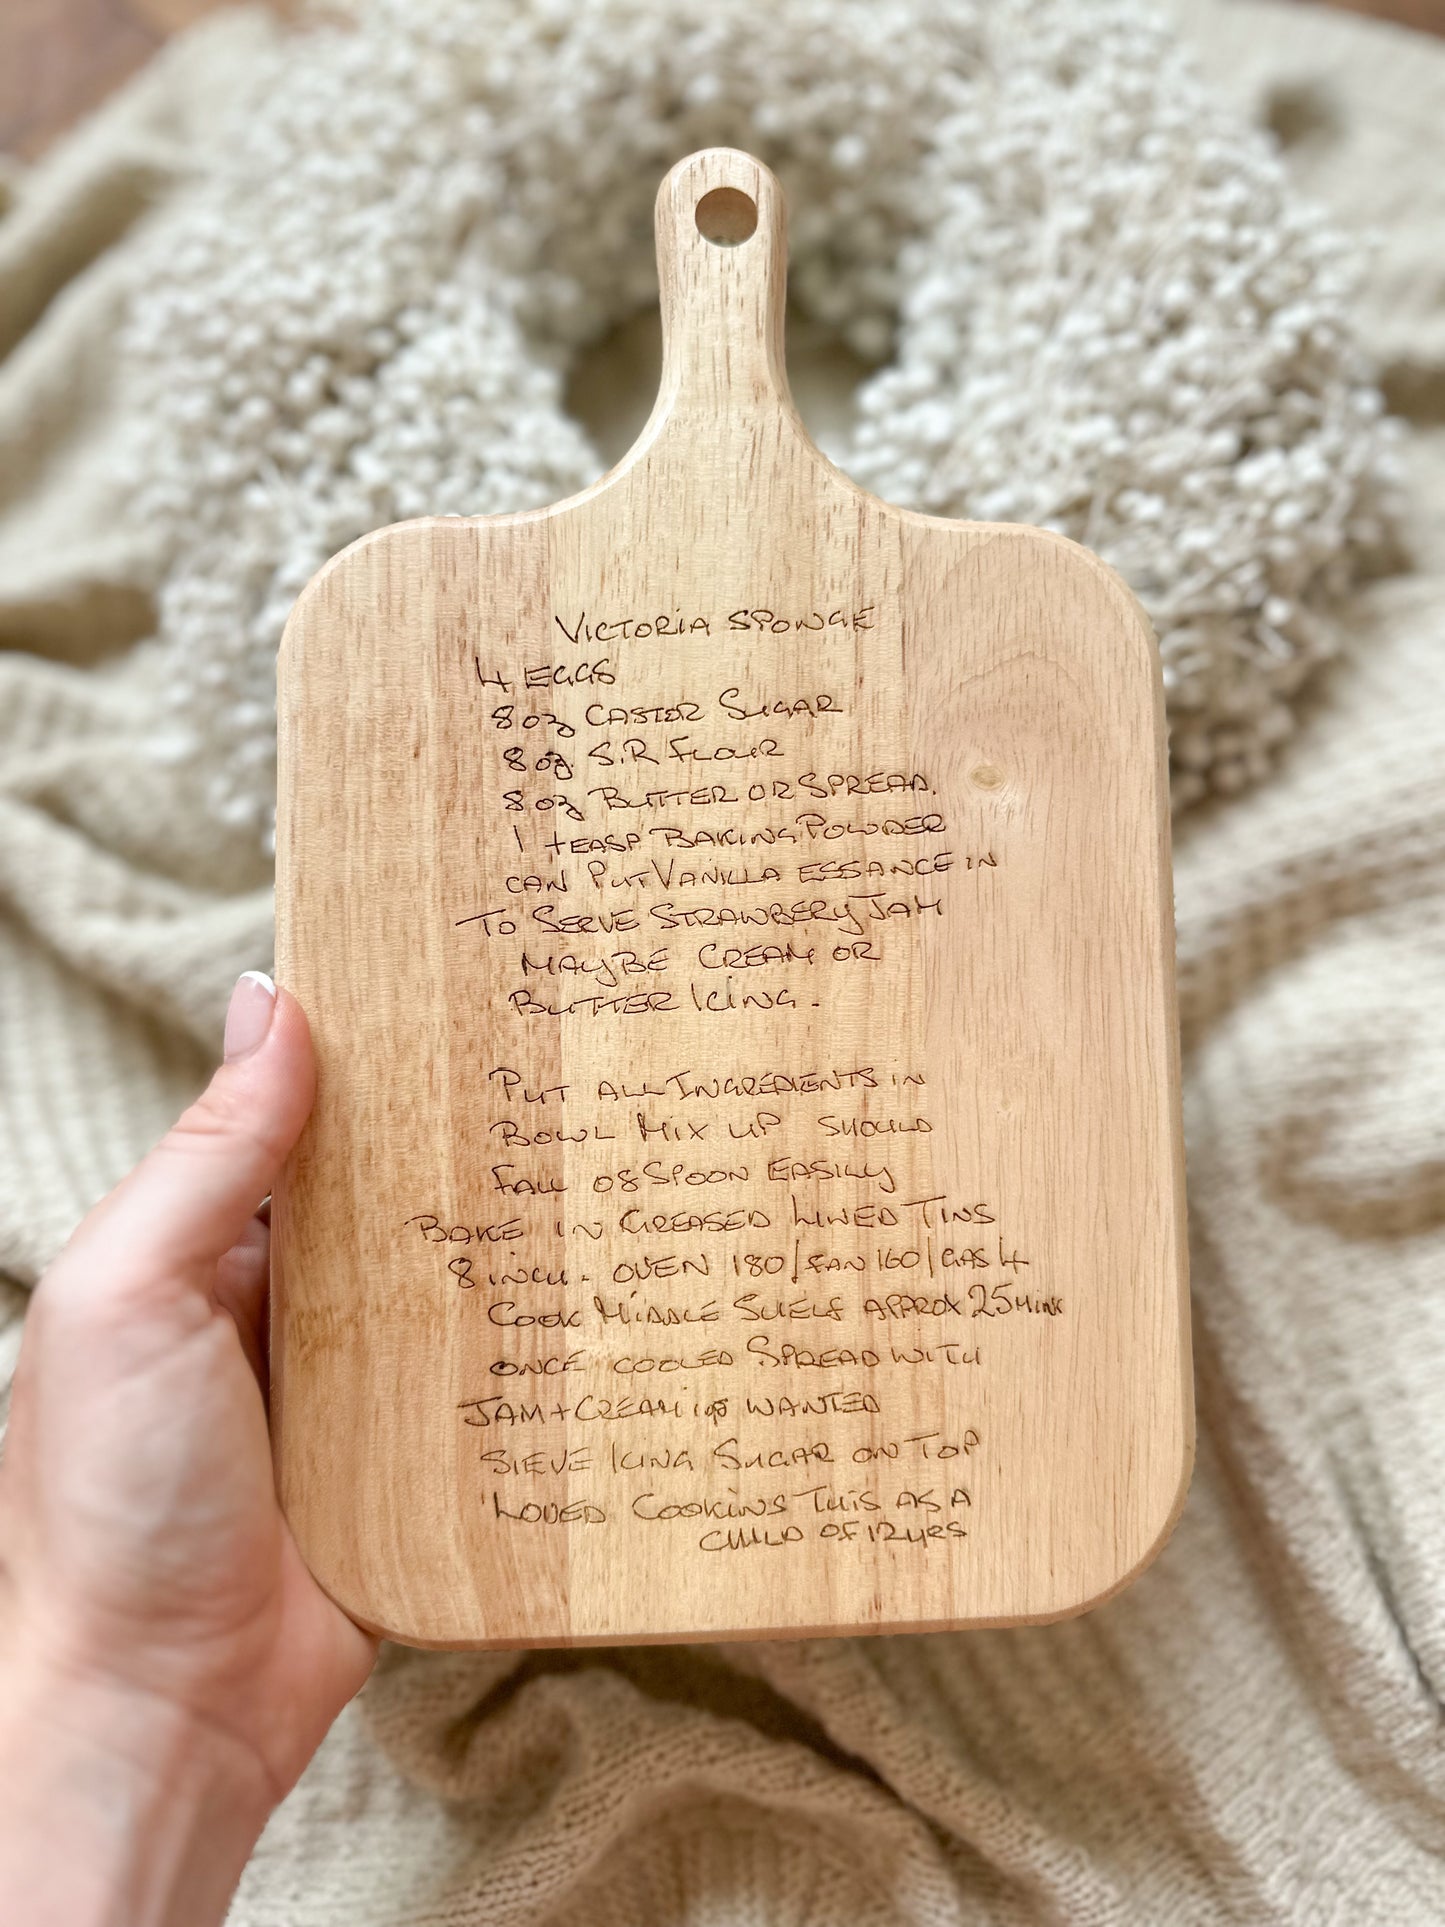 VICTORIA SPONGE
4 EGGS
8 oz CASTOR SUGAR
8 oz. S.R FLOUR
8 oz BUTTER OR SPREAD.
1 TEASP BAKING POWDER
CAN PUT VANILLA ESSANCE IN
TO SERVE STRAWBERY JAM
MAYBE CREAM OR
BUTTER ICING.
PUT ALL INGREDIENTS IN
BOWL MIX UP SHOULD
FALL OF SPOON EASILY
BAKE IN GREASED LINED TINS
8 INCH. OVEN 180/FAN 160/GAS 4
COOK MIDDLE SHELF APPROX 25 MINS
ONCE COOLED SPREAD WITH
JAM + CREAM IF WANTED
SIEVE ICING SUGAR ON TOP
LOVED COOKING THIS AS A
CHILD OF 12 YRS